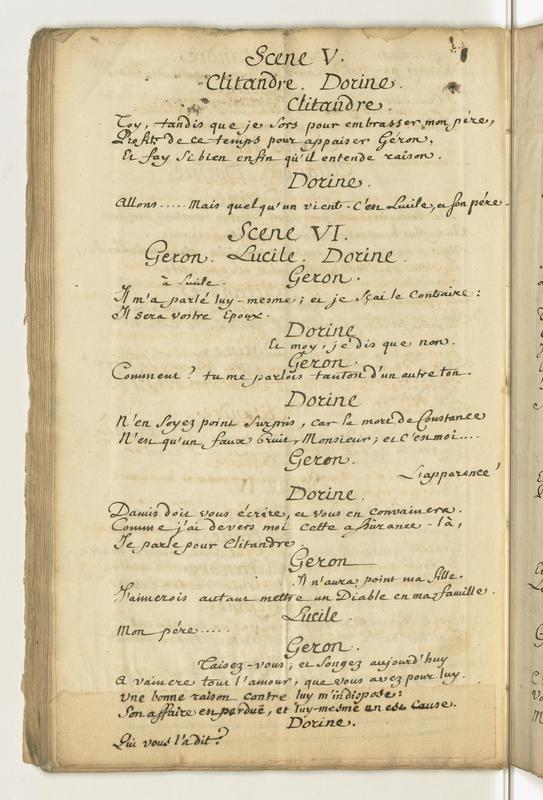 Scene V.
Clitandre. Dorine.
Clitandre.
Toy, tandis que je sors pour embrasser mon pére,
Profite de ce temps pour appaiser Géron,
Et fay si bien enfin qu'il entende raison.
Dorine.
Allons..... Mais quelqu'un vient. C'est Lucile, et son pére.
Scene VI.
Geron. Lucile. Dorine.
Geron.
à Lucile.
Il m'a parlé luy-mesme; et je sçai le contraire:
Il sera vostre Epoux.
Dorine
Et moy, je dis que non.
Geron.
Comment? tu me parlois tantost d'un autre ton.
Dorine
N'en soyez point surpris, car la mort de Constance
N'est qu'un faux bruit, Monsieur; et c'est moi....
Geron.
L'apparence!
Dorine.
Damis doit vous écrire, et vous en convaincra.
Comme j'ai devers moi cette assûrance-là,
Je parle pour Clitandre.
Geron
Il n'aura point ma fille.
J'aimerois autant mettre un Diable en ma famille.
Lucile.
Mon pére.....
Geron.
Taisez-vous; et songez aujourd'huy
A vaincre tout l'amour, que vous avez pour luy.
Une bonne raison contre luy m'indispose:
Son affaire est perduë, et luy-mesme en est cause.
Dorine.
Qui vous l'a dit?